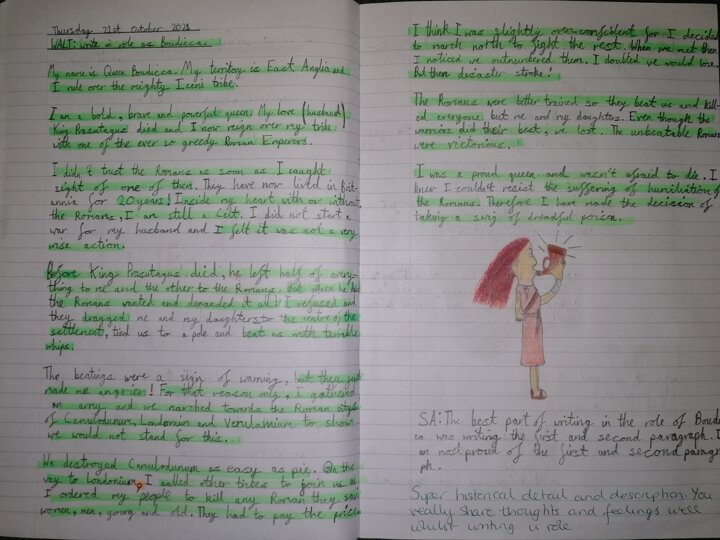 Thursday 21st October 2021
WALT: write in role as Boudicca.
My name is Queen Boudicca. My territory is East Anglia and
I rule over the mighty Iceni tribe.
I am a bold, brave and powerful queen. My love (husband)
King Prasutagus died and I now reign over my tribe
with one of the ever so greedy Roman Emperors.
I didn't trust the Romans as soon as I caught
sight of one of them. They have now lived in Brit-
annia for 20 years! Inside my heart with or without
the Romans, I am still a Celt. I did not start a
war for my husband and I felt it was not a very
wise action.
Before King Prasutagus died, he left half of every-
thing to me and the other to the Romans. But when he
the Romans wanted and demanded it all! I refused and
they dragged me and my daughters to the centre of the
settlement, tied us to a pole and beat us with terrible
whips.
The beatings were a sign of warning, but they just
made me angrier! For that reason only, I gathered
an army and we marched towards the Roman citys
of Camulodunum, Londonium and Verulamium to show
we would not stand for this...
We destroyed Camulodunum as easy as pie. On the
way to Londonium, I called other tribes to join us as
I ordered my people to kill any Roman they saw
women, men, young and old. They had to pay the price
I think I was slightly overconfident for I decided
to march north to fight the rest. When we met them
I noticed we outnumbered them. I doubted we would lose.
But then disaster stroke!
The Romans were better trained so they beat us and kill-
ed everyone but me and my daughters. Even though the
warriors did their best, we lost. The unbeatable Romans
were victorious.
I was a proud queen and wasn't afraid to die. I
knew I couldn't resist the suffering of humiliation of
the Romans. Therefore I have made the decision of
taking a swig of dreadful poison.
SA: The best part of writing in the role of Boudi
ca was writing the first and second paragraph. I
am most proud of the first and second paragr
ph.
Super historical detail and description. You
really share thoughts and feelings well
whilst writing in role.